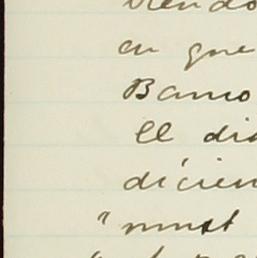 viendo
en que
Banco
El dia
dicien
"must